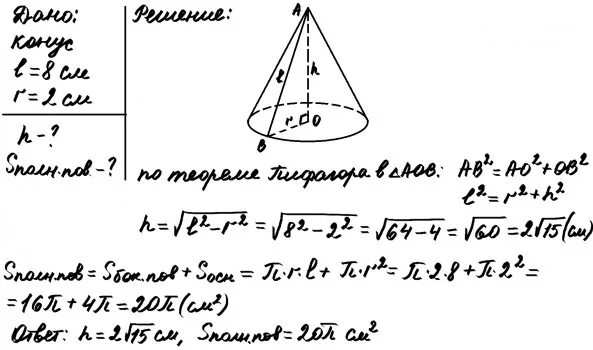 Дано:
конус
l=8 см
r=2 см
h-?
Sполн.пов.-?
Решение:
A
l
h
r
O
B
по теореме Пифагора в △AOB: AB²=AO²+OB²
l²=r²+h²
h=√(l²-r²)=√(8²-2²)=√(64-4)=√60=2√15(см)
Sполн.пов=Sбок.пов+Sосн=π·r·l+π·r²=π·2·8+π·2²=
=16π+4π=20π(см²)
Ответ: h=2√15 см, Sполн.пов=20π см²